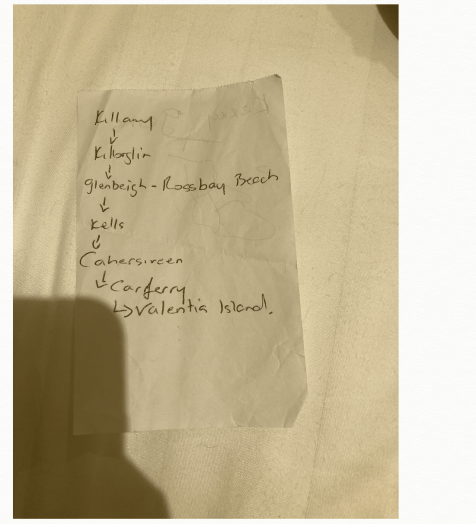 Killarny
Killorglin
Glenbeigh - Rossbay Beach
Kells
Cahersiveen
Carferry
Valentia Island.